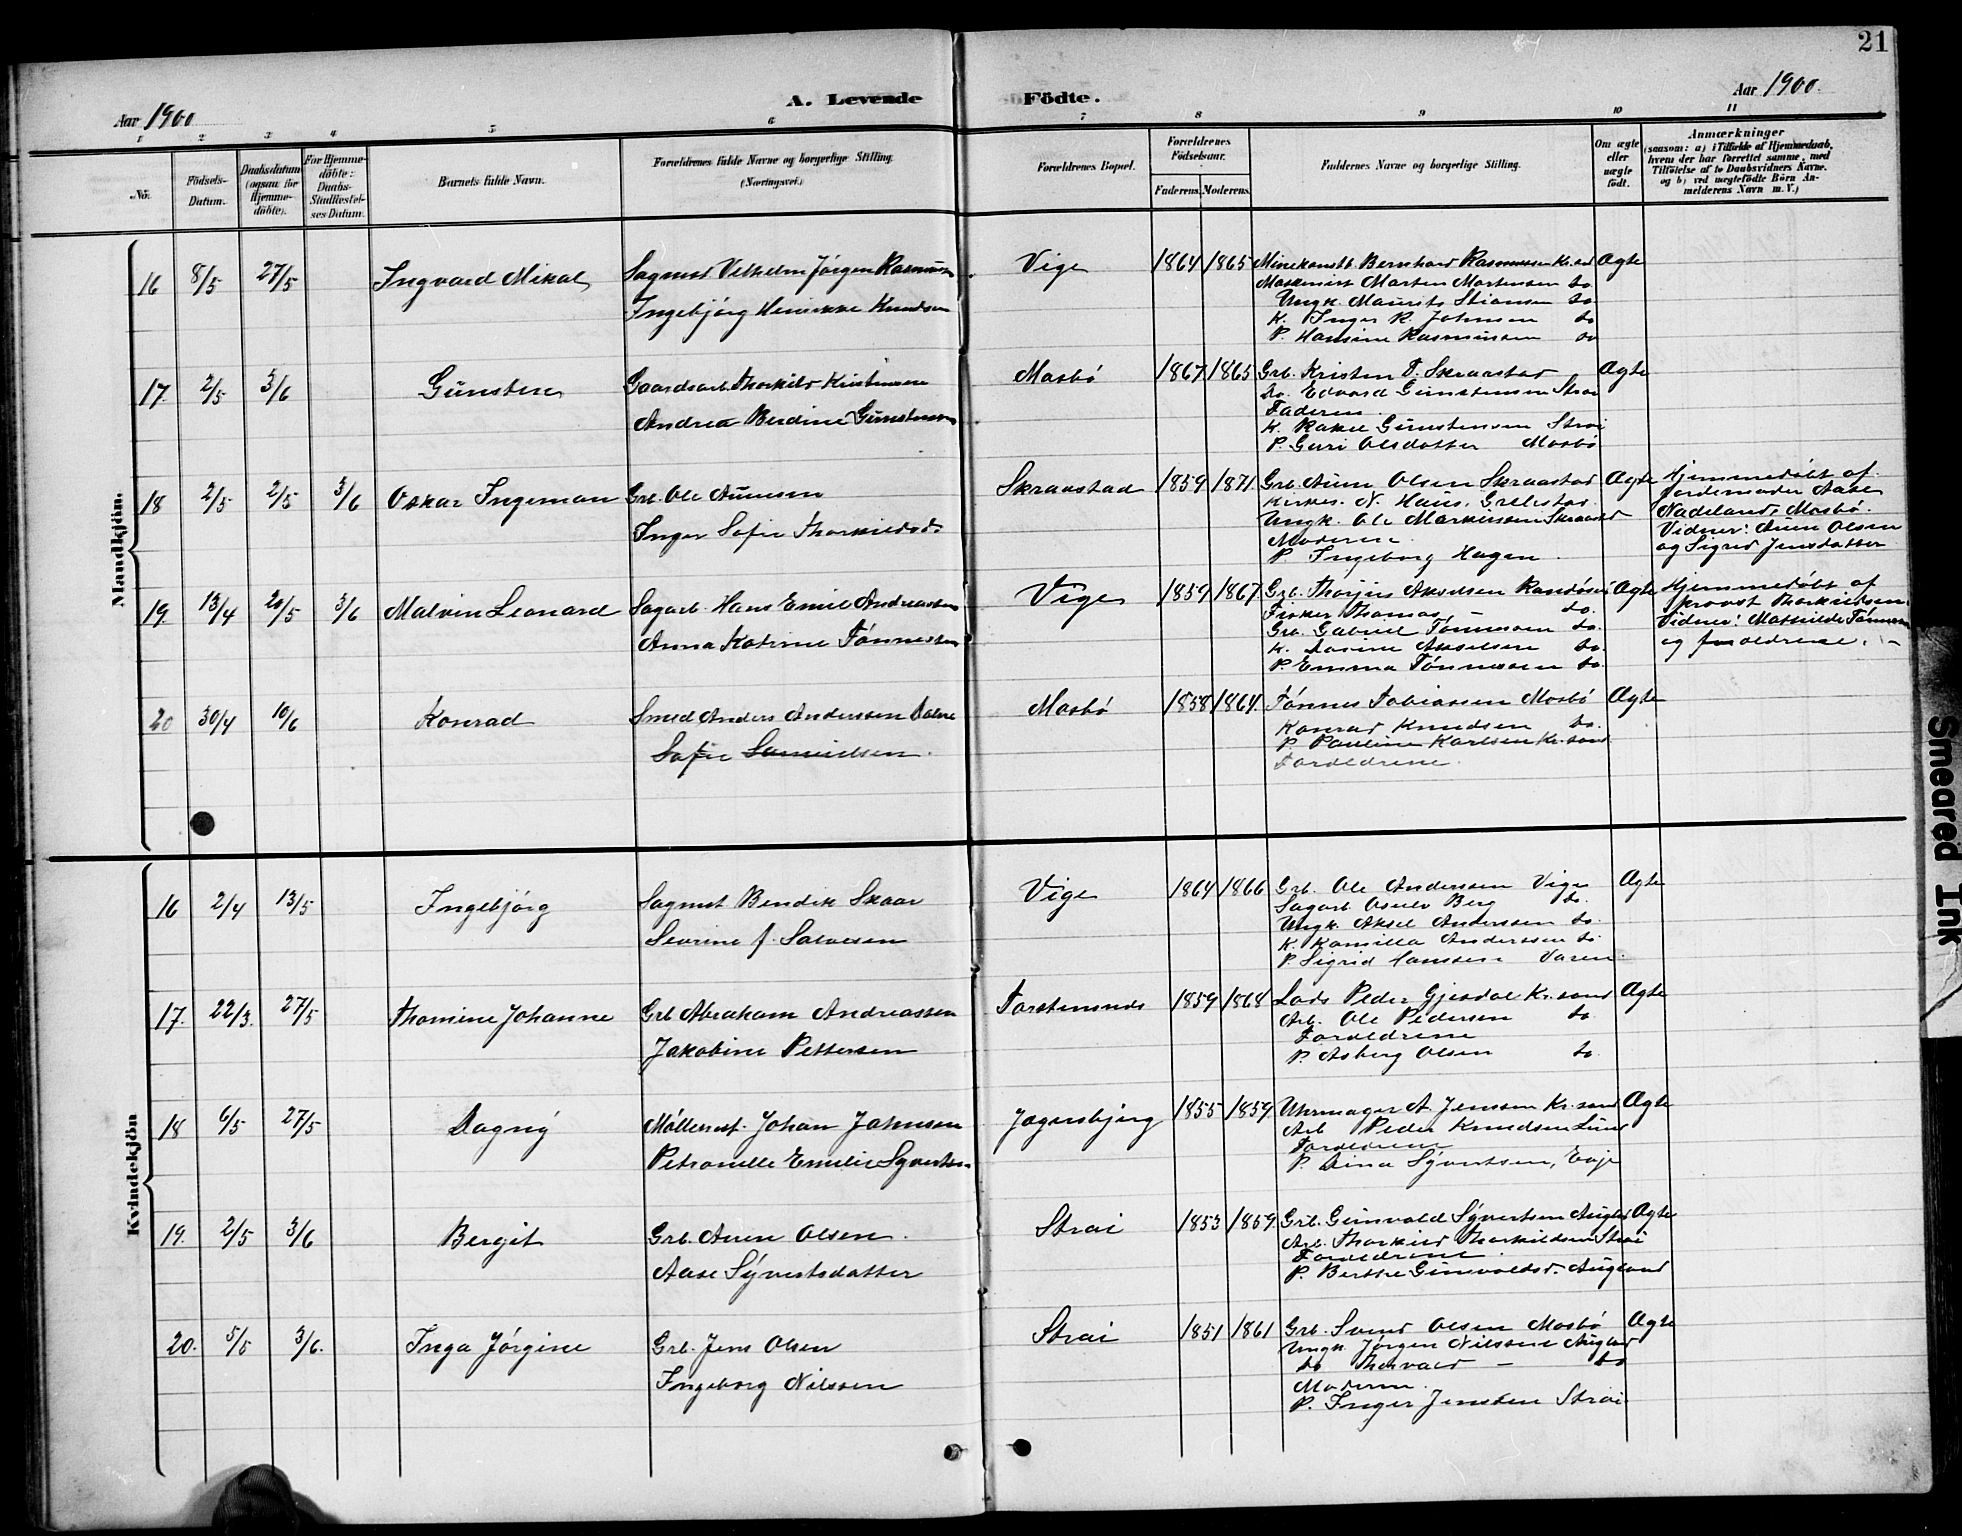 21
Aar 1900
A. Levende Födte.
Aar 1900.
1 2 3 4 5 6 7 8 9 10 11
No.
Födsels-Datum.
Daabsdatum (ogsaa for Hjemme-döbte).
For Hjemme-döbte: Daabs-Stadfæstel-ses Datum.
Barnets fulde Navn.
Forældrenes fulde Navne og borgerlige Stilling. (Næringsvei.)
Forældrenes Bopæl.
Forældrenes Födselsaar.
Faderens. Moderens.
Faddernes Navne og borgerlige Stilling.
Om ægte eller uægte födt.
Anmærkninger
(saasom: a) i Tilfælde af Hjemmedaab, hvem der har forrettet samme, med Tilföielse af to Daabsvidners Navne. og b) ved uægtefödte Börn An-melderens Navn m. V.)
Mandkjön.
16 8/5 27/5 Ingvard Mikal
Sagmst Vilhelm Jörgen Rasmussen
Ingebjörg Henrikke Knudsen
Vige 1864 1865
Minekonstb. Bernhard Rasmussen Kr.sand
Maskinist Marten Mortensen do
Ungk. Maurits Stiansen do
K. Inger R. Johnsen do
P. Hansine Rasmussen do
Ægte
17. 2/5 3/6 Gunsten
Gaardsarb. Thorkild Kristensen
Andrea Berdine Gunstensen
Mosbö 1867 1865
Grb. Kristen T. Skraastad
do. Edvard Gunstensen Strai
Faderen.
K. Rakel Gunstensen Strai
P. Guri Olsdatter Mosbö
Ægte
18 2/5 2/5 3/6 Oskar Ingeman
Grb. Ole Aunesen
Inger Sofie Thorkildsd.
Skraastad 1859 1871
Grb. Aune Olsen Skraastad
Kirkes. N. Haus,
Ungk. Ole Markussen Skraastad
Moderen
P. Ingeborg Hagen
Ægte
Hjemmedöbt af
Jordemoder Aase
Nadeland, Mosbö.
Vidner: Aune Olsen
og Sigrid Jensdatter
19. 13/4 20/5 3/6 Malvin Leonard
Sagarb. Hans Emil Andreassen
Anna Katrine Tönnessen
Vige 1859 1867
Grb. Thorjus Akselsen Randösen
Fisker Thomas — do.
Grb. Gabriel Tönnessen do.
K. Akselsen do.
P. Emma Tönnessen do.
Ægte
Hjemmedöbt af
provst Thorkildsen.
Vidner: Mathilde Tönnessen
og forældrene.
20 30/4 10/6 Konrad
Smed Anders Andersen
Sofie Samuelsen.
Mosbö 1858 1864.
Tönnes Tobiassen Mosbö
Konrad Knudsen do.
P. Pauline Karlsen Kr.sand
Forældrene.
Ægte
Kvindekjön
16 2/4 13/5 Ingebjörg
Sagmst Bendik Skaar
Severine J. Salvesen
Vige 1864 1866
Grb. Ole Andersen Vige
Sagarb. Berg do.
Ungk. Aksel Andersen do.
K. Kamilla Anderssen do.
P. Sigrid Hanssen Varen.
Ægte
17. 22/3. 27/5 Thomine Johanne
Grb Abraham Andreassen
Jakobine Pettersen
1859 1868
Lods Peder Gjesdal Kr.sand
Arb. Ole Pedersen do.
Forældrene
P. Asberg Olsen do.
Ægte
18 6/5 27/5 Dagny
Möllemst. Johan Johnsen
Petronille Emilie Syvertsen
Jægersbjerg 1855 1859.
Uhrmager A. Jensen Kr.sand
Arb Peder Knudsen Lund
Forældrene
P. Dina Syvertsen, Evje
Ægte
19. 2/5 3/6 Bergit
Grb. Aunen Olsen.
Aase Syvertsdatter
Strai 1853 1859.
Grb. Gunvald Syvertsen Augland
Arb. Thorkild Thorkildsen Strai
Forældrene.
P. Berthe Gunvaldsd. Augland
Ægte
20. 5/5 3/6. Inga Jörgine
Grb. Jens Olsen
Ingeborg Nilssen
Strai 1851 1861
Grb. Svend Olsen Mosbö
Ungk. Jörgen Nilssen Augland
do Thorvald — do
Moderen.
P. Inger Jensen Strai
Ægte
Smeared Ink